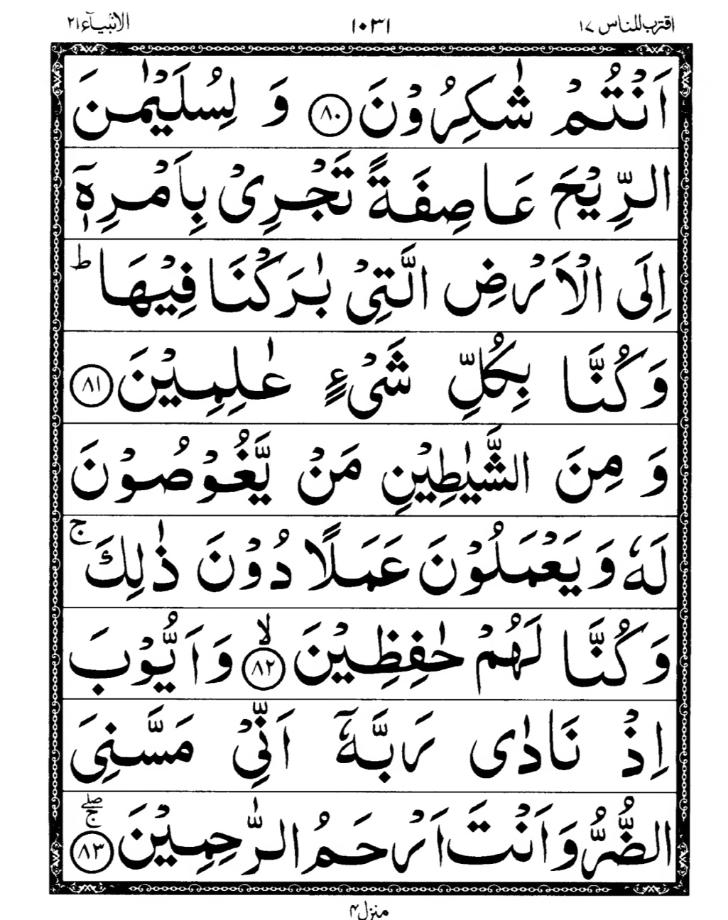 اقترب للناس ۱۷
۱۰۳۱
الانبیآء ۲۱
اَنْتُمْ شٰكِرُوْنَ ﴿۸۰﴾ وَ لِسُلَيْمٰنَ
الرِّيْحَ عَاصِفَةً تَجْرِیْ بِاَمْرِهٖۤ
اِلَى الْاَرْضِ الَّتِیْ بٰرَكْنَا فِيْهَا ؕ
وَ كُنَّا بِكُلِّ شَیْءٍ عٰلِمِيْنَ ﴿۸۱﴾
وَ مِنَ الشَّيٰطِيْنِ مَنْ يَّغُوْصُوْنَ
لَهٗ وَ يَعْمَلُوْنَ عَمَلًا دُوْنَ ذٰلِكَ ۚ
وَ كُنَّا لَهُمْ حٰفِظِيْنَ ۙ﴿۸۲﴾ وَ اَيُّوْبَ
اِذْ نَادٰی رَبَّهٗۤ اَنِّیْ مَسَّنِیَ
الضُّرُّ وَ اَنْتَ اَرْحَمُ الرّٰحِمِيْنَ ۚۖ﴿۸۳﴾
منزل ۴